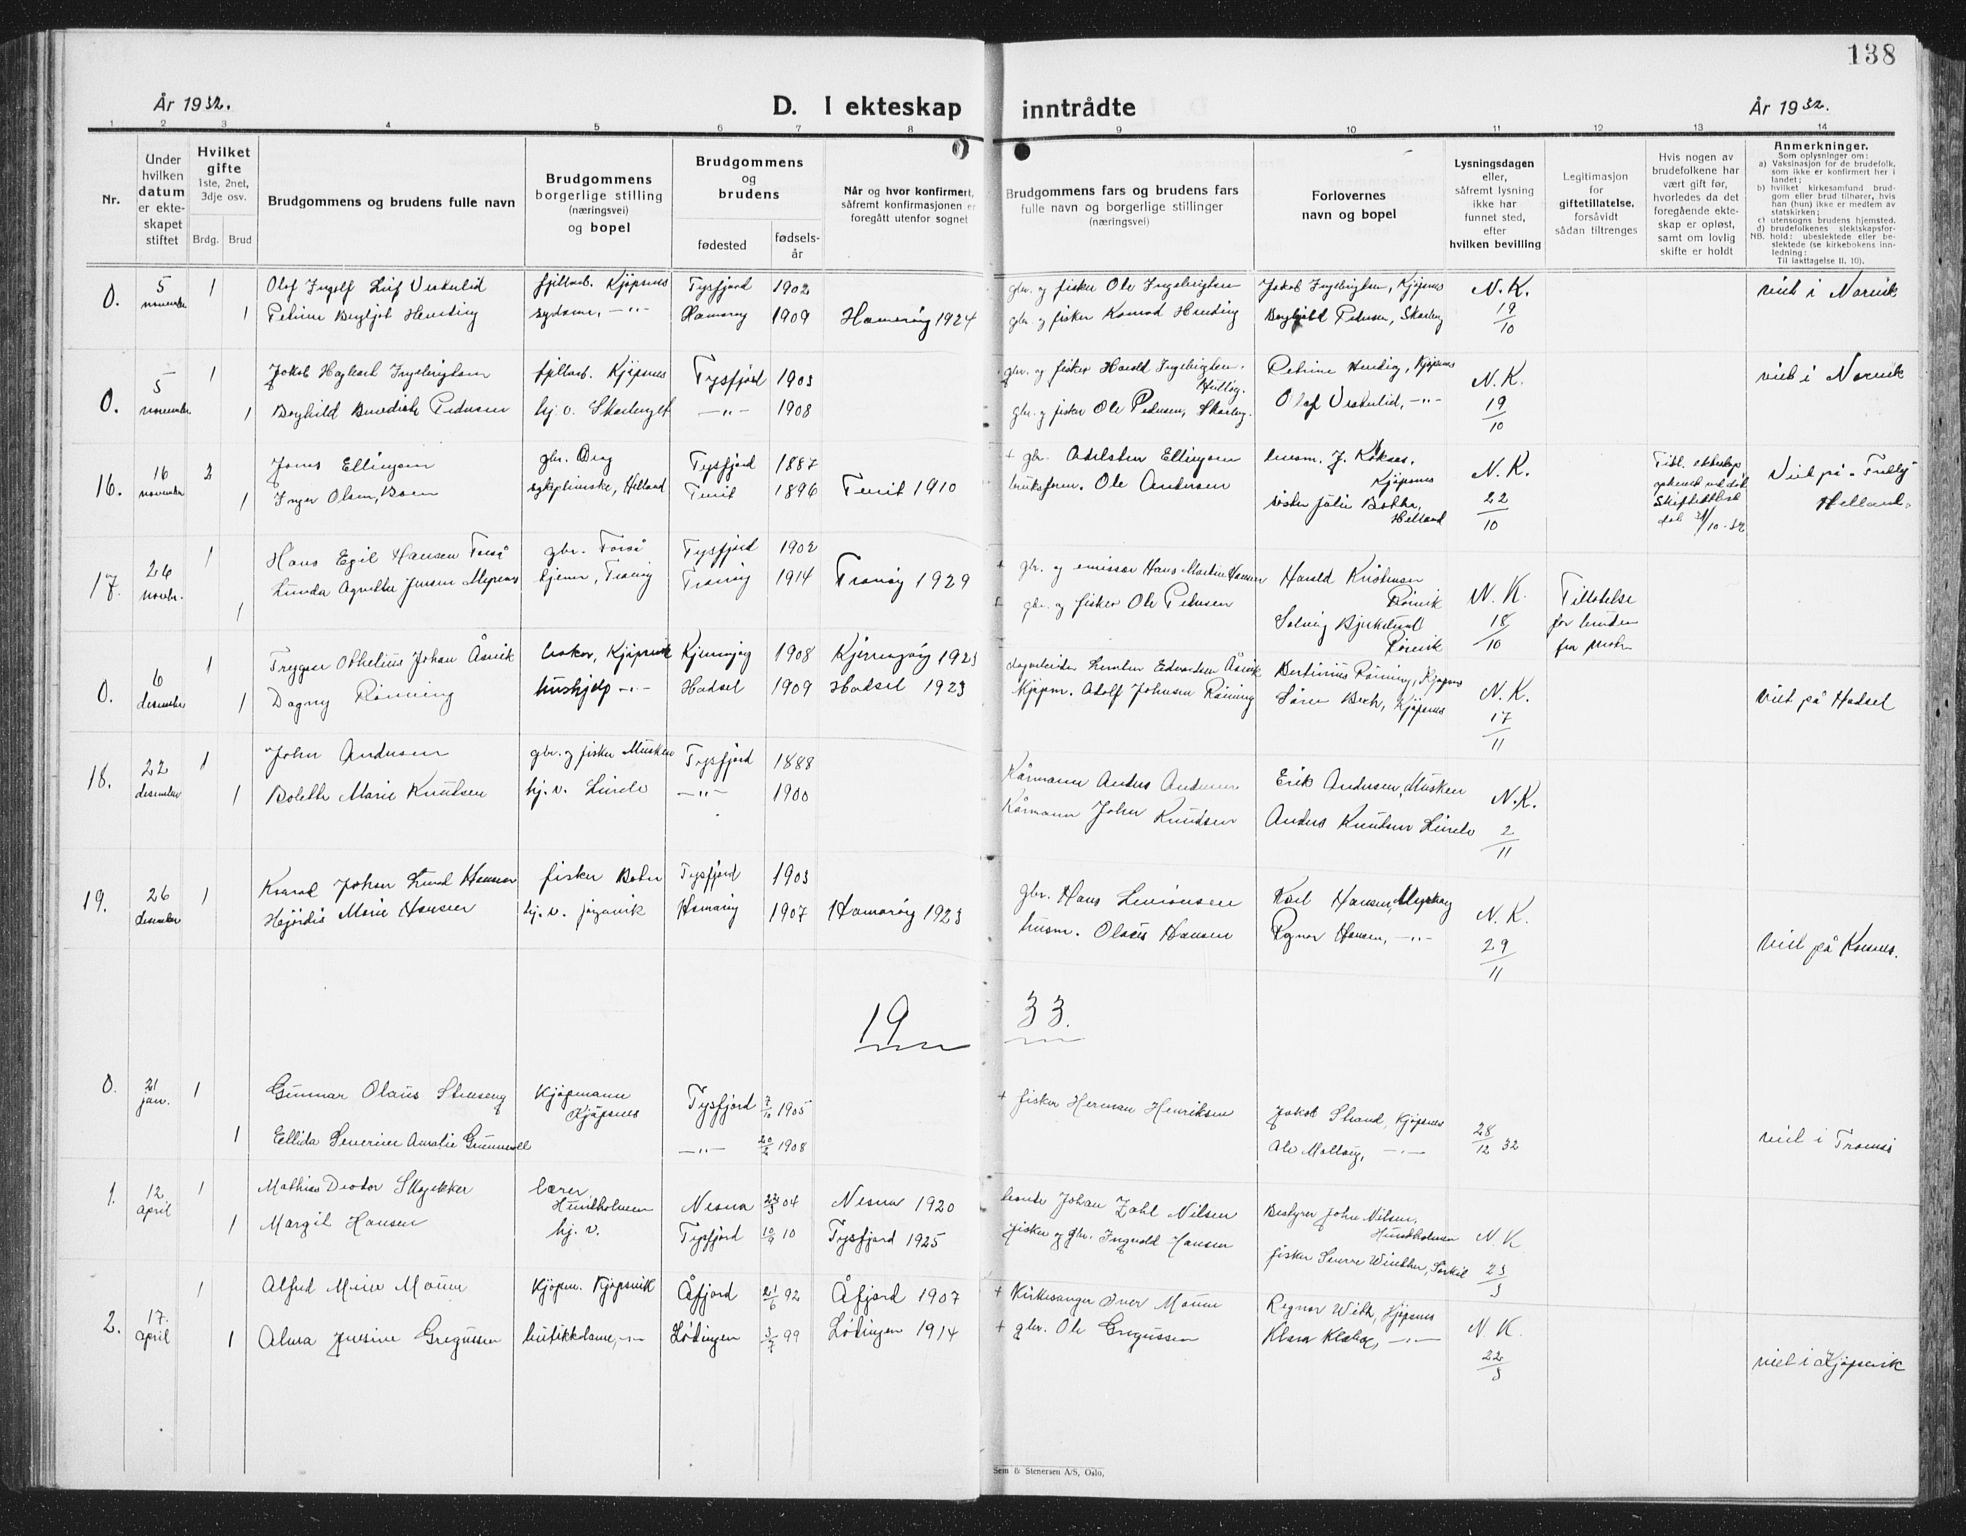 138
År 1932.
D. I ekteskap inntrådte
År 1932.
1 2 3 4 5 6 7 8 9 10 11 12 13 14
Nr.
Under hvilken datum er ekteskapet stiftet
Hvilket gifte 1ste, 2net, 3dje osv.
Brdg. Brud
Brudgommens og brudens fulle navn
Brudgommens borgerlige stilling (næringsvei) og bopel
Brudgommens og brudens
fødested
fødselsår
Når og hvor konfirmert, såfremt konfirmasjonen er foregått utenfor sognet
Brudgommens fars og brudens fars fulle navn og borgerlige stillinger (næringsvei)
Forlovernes navn og bopel
Lysningsdagen eller, såfremt lysning ikke har funnet sted, efter hvilken bevilling
Legitimasjon for giftetillatelse, forsåvidt sådan tiltrenges
Hvis nogen av brudefolkene har vært gift før, hvorledes da det foregående ekteskap er opløst, samt om lovlig skifte er holdt
Anmerkninger.
Som oplysninger om:
a) Vaksinasjon for de brudefolk, som ikke er konfirmert her i landet;
b) hvilket kirkesamfund brudgom eller brud tilhører, hvis han (hun) ikke er medlem av statskirken;
c) utensogns brudens hjemsted.
d) brudefolkenes slektskapsforhold: ubeslektede eller beslektede (se kirkebokens innledning:
NB. Til iakttagelse II. 10).
0. 5 november 1 Olaf Ingolf Leif Veskulid fjellarb. Kjøpsnes Tysfjord 1902 gbr. og fisker Ole Ingebrigtsen Jakob Ingebrigtsen, Kjøpsnes N.K. 19/10 viet i Narvik
1 Petrine Bergljot Hending sydame, -"- Hamarøy 1909 Hamarøy 1924 gbr. og fisker Konrad Hending Borghild Pedersen, Skarberg
0. 5 november 1 Jakob Hagbart Ingebrigtsen fjellarb. Kjøpsnes Tysfjord 1903 gbr. og fisker Harald Ingebrigtsen, Petrine Hending, Kjøpsnes N.K. 19/10 viet i Narvik
1 Borghild Benedikte Pedersen hj. v. -"- 1908 gbr. og fisker Ole Pedersen, Skarberg. Olaf Veskulid, -"-
16. 16 november 2 Jonas Ellingsen gbr. Drag Tysfjord 1887 + gbr. Adelsten Ellingsen lensm. J. Koksas, Kjøpsnes N.K. 22/10
1 Inger Olsen Boen sykepleierske, Helland 1896 1910 bruksform. Ole Andersen søster Julie Bakke, Helland
skifteattest dat. 31/10-32
Helland.
17. 26 novbr. 1 Hans Egil Hansen Forså gbr. Forså Tysfjord 1902 + gbr. og emissær Hans Martin Hansen Harald Kristensen N.K. 18/10 Tillatelse for bruden
1 Lunda Agnethe Jensen Myrnes tjener, Tranøy Tranøy 1914 Tranøy 1929 gbr. og fisker Ole Pedersen Solveig Bjerkelund
0. 6 desember 1 Trygve Othelius Johan Åsvik Kjøpsvik Kjerringøy 1908 Kjerringøy 1923 Edvardsen Åsvik Bertinius Rønning, Kjøpsnes N.K. 17/11 viet på Hadsel
1 Dagny Rønning hushjelp -"- Hadsel 1909 Hadsel 1923 Kjøpm. Adolf Johnsen Rønning Sører Bech, Kjøpsnes
18. 22 desember 1 John Andersen gbr. og fisker Musken Tysfjord 1888 Kårmann Anders Andersen Erik Andersen, Musken N.K. 2/11
1 Bolette Marie Knutsen hj. v. -"- 1900 Kårmann John Knudsen Anders Knutsen
19. 26 desember 1 Konrad Johan Lund Hansen fisker Tysfjord 1903 gbr. Hans Karl Hansen, N.K. 29/11
Hjørdis Marie Hansen hj. v. Hamarøy 1907 Hamarøy 1923 husm. Olaus Hansen Ragnar Hansen, -"- viet på Korsnes.
19 33.
0. 21 jan. 1 Gunnar Olaus Stenseng Kjøpmann Kjøpsnes Tysfjord 7/10 1905 + fisker Herman Henriksen Jakob Strand, Kjøpsnes 28/12 32
1 Ellida Severine Amalie -"- 20/2 1908 viet i Tromsø
1. 12 april 1 Mathias Deodor Skjækker lærer Hundholmen Nesna 22/3 04 Nesna 1920 bonde Johan Zahl Nilsen Bestyrer John Nilsen, Hundholmen N.K 23/3
1 Margit Hansen hj. v. Tysfjord 10/9 10 Tysfjord 1925 fisker og gbr. Ingvald Hansen fisker Sverre Winther, Sørkil
2. 17. april 1 Alfred Meier Mouum Kjøpm. Kjøpsvik Åfjord 21/6 92 Åfjord 1907 + Kirkesanger Iver Mouum Ragnar With, Kjøpsnes N.K. 22/3
1 Alma Jensine Gregussen butikkdame, -"- Lødingen 3/7 99 Lødingen 1914 + gbr. Ole Gregussen Klara -"- viet i Kjøpsvik
Sem & Stenersen A/S, Oslo.